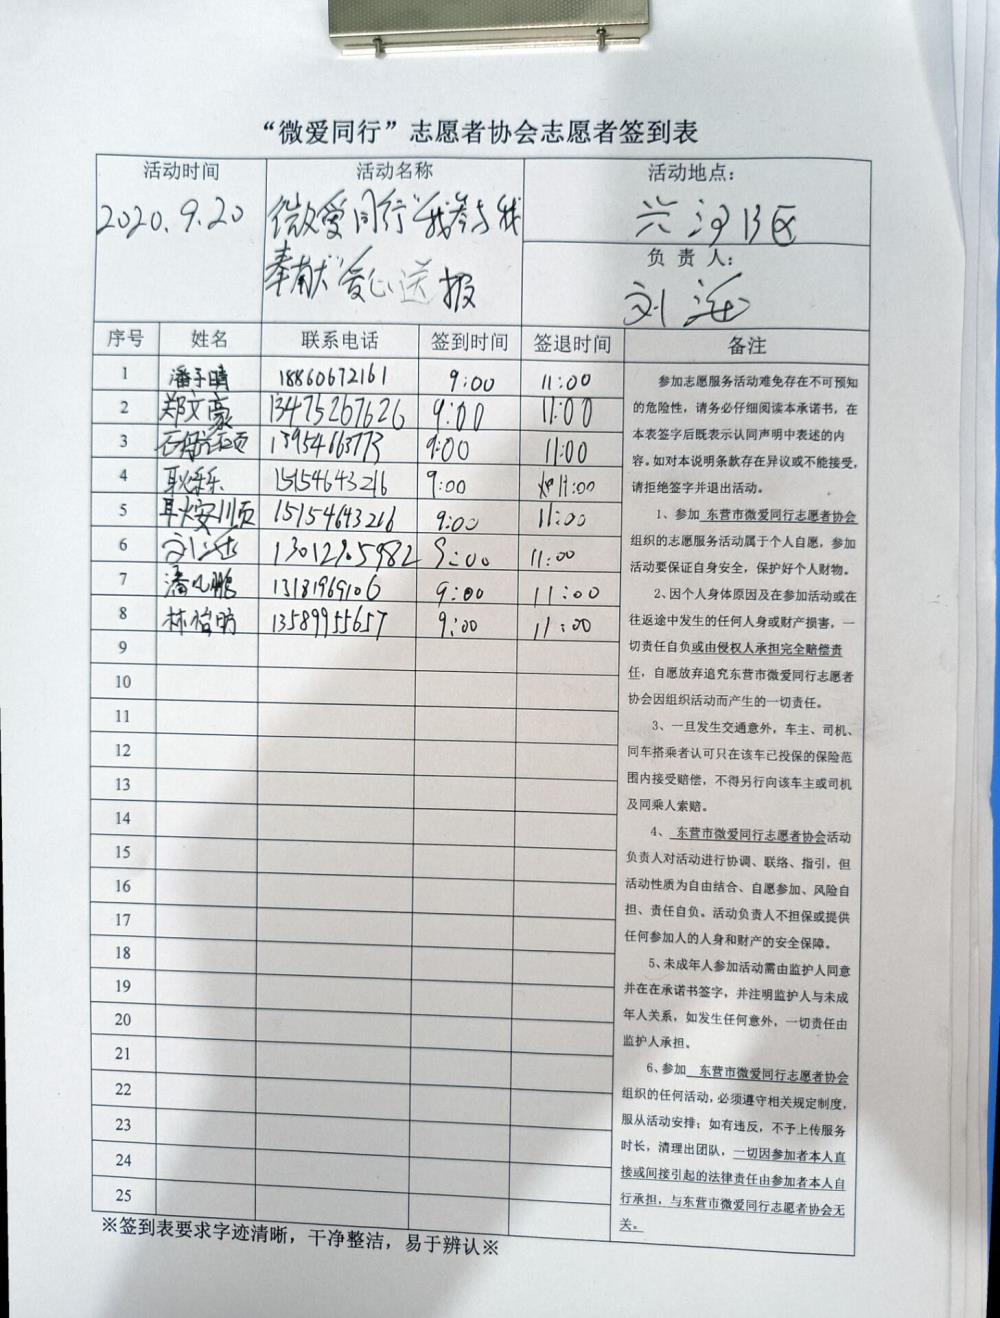 “微爱同行”志愿者协会志愿者签到表
活动时间
2020.9.20
活动名称
微爱同行“我参与我
奉献”爱心送报
活动地点：
兴河小区
负责人：
刘
序号 姓名 联系电话 签到时间 签退时间 备注
1 潘子晴 18860672161 9:00 11:00
2 郑文豪 13475267626 9:00 11:00
3 13954663773 9:00 11:00
4 耿乐乐 15154643216 9:00 11:00
5 15154643216 9:00 11:00
6 刘 13012705982 9:00 11:00
7 潘鹏 13181969106 9:00 11:00
8 林怡昕 13589955657 9:00 11:00
9
10
11
12
13
14
15
16
17
18
19
20
21
22
23
24
25
参加志愿服务活动难免存在不可预知
的危险性，请务必仔细阅读本承诺书，在
本表签字后既表示认同声明中表述的内
容。如对本说明条款存在异议或不能接受，
请拒绝签字并退出活动。
1、参加 东营市微爱同行志愿者协会
组织的志愿服务活动属于个人自愿，参加
活动要保证自身安全，保护好个人财物。
2、因个人身体原因及在参加活动或在
往返途中发生的任何人身或财产损害，一
切责任自负或由侵权人承担完全赔偿责
任，自愿放弃追究东营市微爱同行志愿者
协会因组织活动而产生的一切责任。
3、一旦发生交通意外，车主、司机、
同车搭乘者认可只在该车已投保的保险范
围内接受赔偿，不得另行向该车主或司机
及同乘人索赔。
4、 东营市微爱同行志愿者协会活动
负责人对活动进行协调、联络、指引，但
活动性质为自由结合、自愿参加、风险自
担、责任自负。活动负责人不担保或提供
任何参加人的人身和财产的安全保障。
5、未成年人参加活动需由监护人同意
并在在承诺书签字，并注明监护人与未成
年人关系，如发生任何意外，一切责任由
监护人承担。
6、参加 东营市微爱同行志愿者协会
组织的任何活动，必须遵守相关规定制度，
服从活动安排；如有违反，不予上传服务
时长，清理出团队，一切因参加者本人直
接或间接引起的法律责任由参加者本人自
行承担，与东营市微爱同行志愿者协会无
关。
※签到表要求字迹清晰，干净整洁，易于辨认※